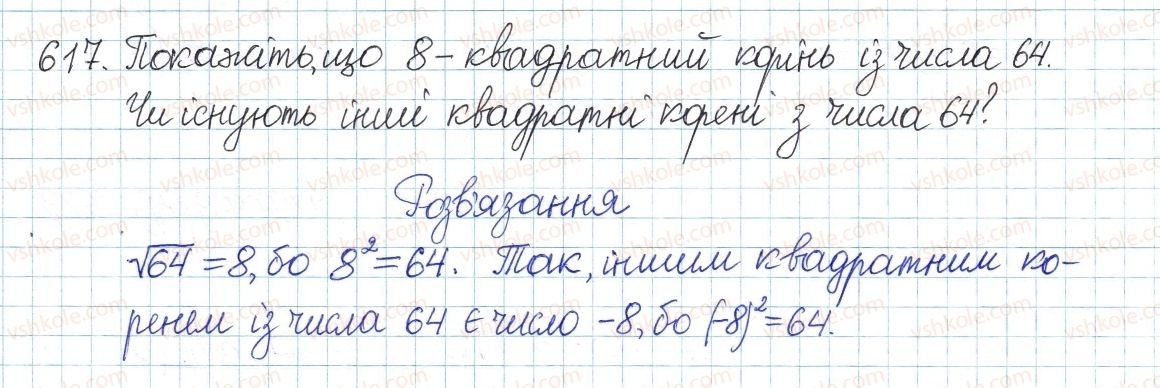 617. Покажіть, що 8 – квадратний корінь із числа 64.
Чи існують інші квадратні корені з числа 64?
Розв'язання
√64 = 8, бо 8² = 64. Так, іншим квадратним ко-
ренем із числа 64 є число -8, бо (-8)² = 64.